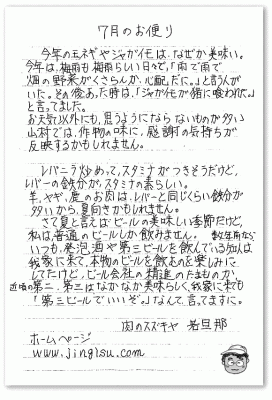 7月のお便り
今年のタネギやジャガイモは、なぜか美味い。
今年は、梅雨も梅雨らしい日々で、「雨で雨で
畑の野菜がくさらんか、心配だに。」と言う人が
いた。その後あった時は、「ジャガイモが猪に喰われた。」
と言ってました。
お天気以外にも、思うようにならないものが多い
山村では、作物の味に、感謝の気持ちが
反映するかもしれません。
レバニラ炒めって、スタミナがつきそうだけど、
レバーの鉄分が、スタミナの素らしい。
羊、ヤギ、鹿のお肉は、レバーと同じくらい鉄分が
多いから、夏向きかもしれません。
さて夏と言えばビールの美味しい季節だけど、
私は普通のビールしか飲みません。数年前なら
いつも、発泡酒や第三ビールを飲んでいる知人は
我家に来て、本物のビールを飲むのを楽しみに
してたけど、ビール会社の精進のたまものか、
近頃の第二、第三はなかなか美味らしく、我家に来ても
「第三ビールでいいぞ。」なんて、言てますに。
肉のスズキヤ 若旦那
ホームページ
www.jingisu.com